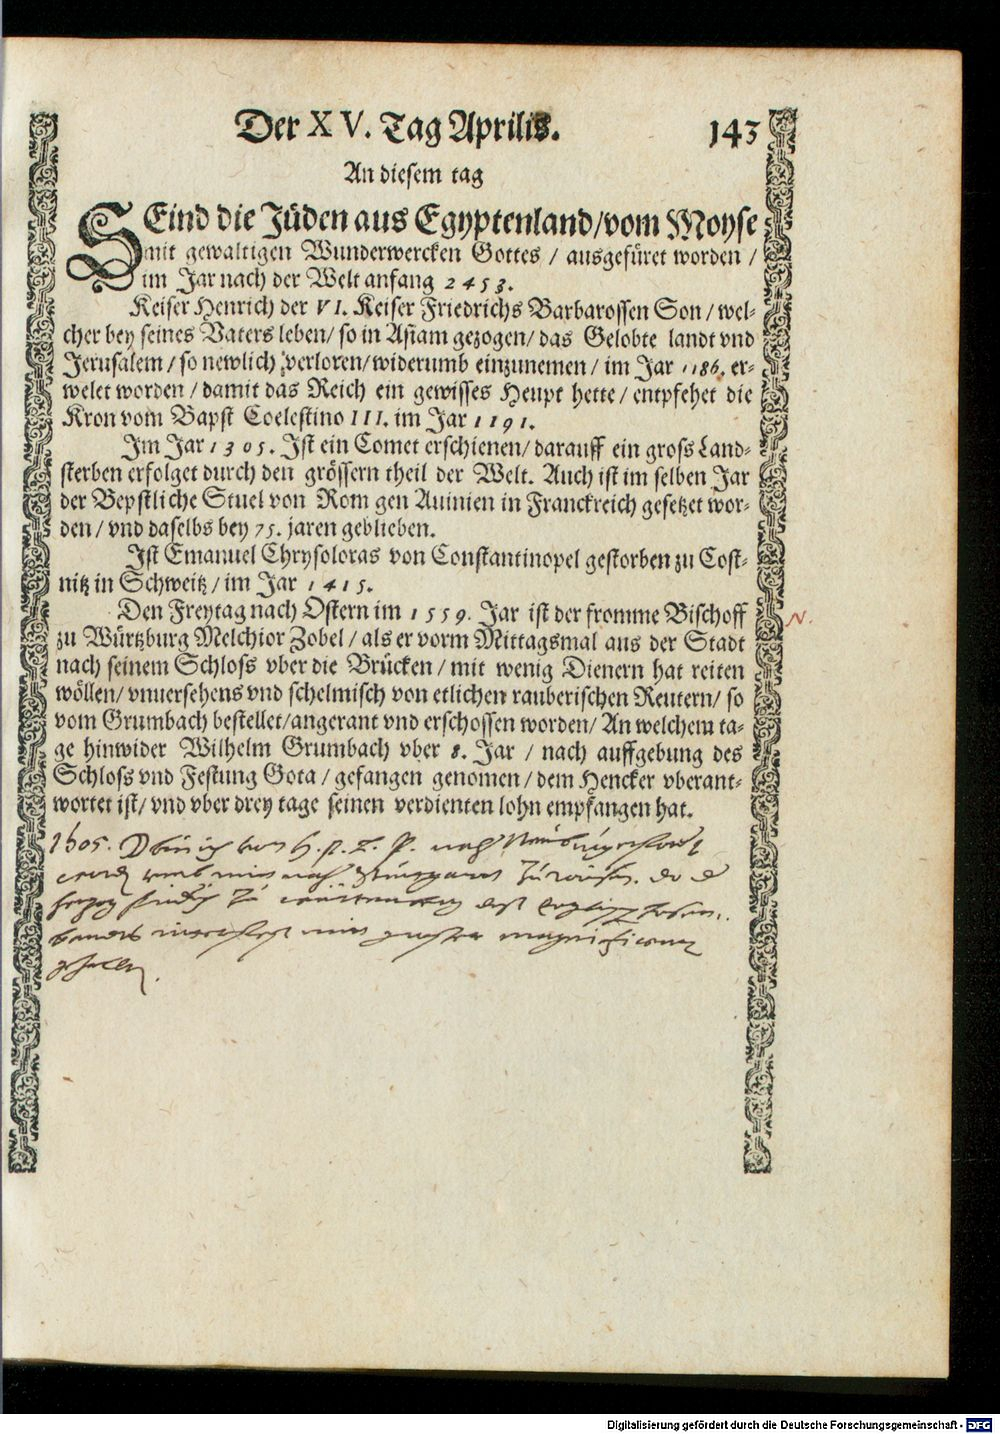 Der XV. Tag Aprilis. 143
An diesem tag
SEind die Jüden aus Egyptenland/vom Moyse
mit gewaltigen Wunderwercken Gottes / ausgefüret worden /
im Jar nach der Welt anfang 2453.
Keiser Henrich der VI. Keiser Friedrichs Barbarossen Son / wel-
cher bey seines Vaters leben / so in Asiam gezogen / das Gelobte landt vnd
Jerusalem / so newlich verloren / widerumb einzunemen / im Jar 1186. er-
welet worden / damit das Reich ein gewisses Heupt hette / entpfehet die
Kron vom Bapst Coelestino III. im Jar 1191.
Im Jar 1305. Jst ein Comet erschienen / darauff ein gross Land-
sterben erfolget durch den grössern theil der Welt. Auch ist im selben Jar
der Bepstliche Stuel von Rom gen Auinien in Franckreich gesetzet wor-
den / vnd daselbs bey 75. jaren geblieben.
Jst Emanuel Chrysoloras von Constantinopel gestorben zu Cost-
nitz in Schweitz / im Jar 1415.
Den Freytag nach Ostern im 1559. Jar ist der fromme Bischoff N.
zu Würtzburg Melchior Zobel / als er vorm Mittagsmal aus der Stadt
nach seinem Schloss vber die Brücken / mit wenig Dienern hat reiten
wöllen / vnuersehens vnd schelmisch von etlichen rauberischen Reutern / so
vom Grumbach bestellet/angerant vnd erschossen worden / An welchem ta-
ge hinwider Wilhelm Grumbach vber 8. Jar / nach auffgebung des
Schloss vnd Festung Gota / gefangen genomen / dem Hencker vberant-
wortet ist / vnd vber drey tage seinen verdienten lohn empfangen hat.
1605.
Digitalisierung gefördert durch die Deutsche Forschungsgemeinschaft - DFG